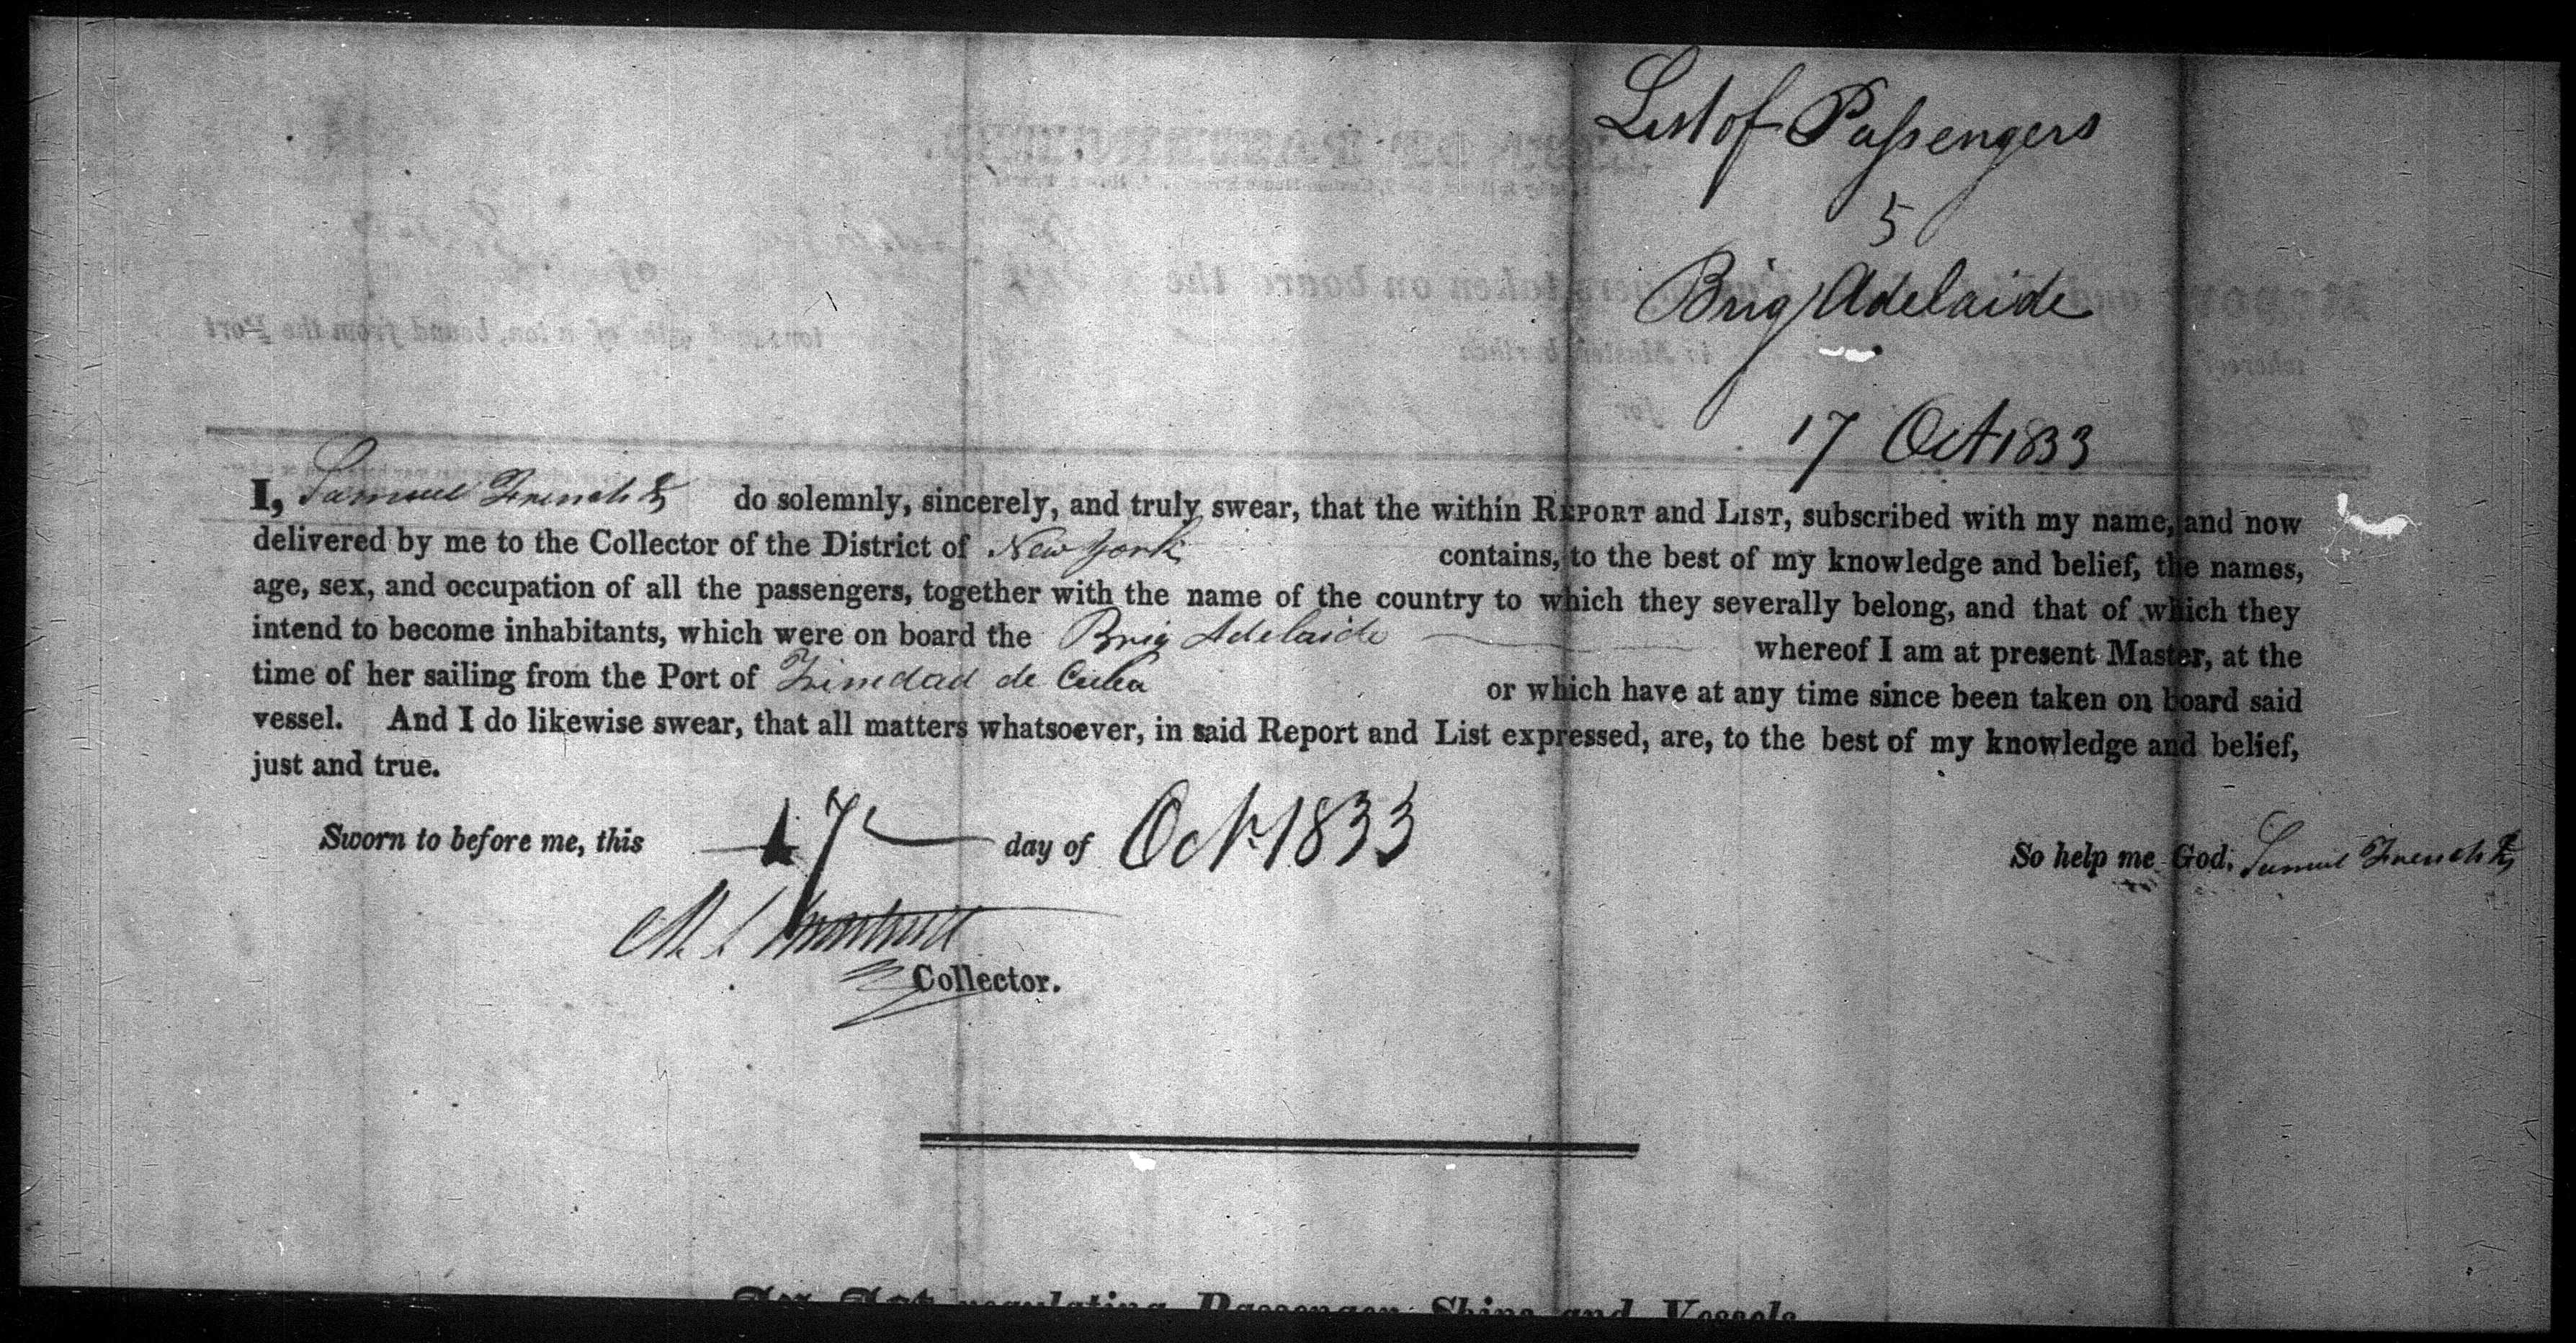 List of Passengers
5
Brig Adelaide
17 Oct 1833
I, Samuel French Jr do solemnly, sincerely, and truly swear, that the within REPORT and LIST, subscribed with my name, and now
delivered by me to the Collector of the District of New York contains, to the best of my knowledge and belief, the names,
age, sex, and occupation of all the passengers, together with the name of the country to which they severally belong, and that of which they
intend to become inhabitants, which were on board the Brig Adelaide whereof I am at present Master, at the
time of her sailing from the Port of Trinidad de Cuba or which have at any time since been taken on board said
vessel. And I do likewise swear, that all matters whatsoever, in said Report and List expressed, are, to the best of my knowledge and belief,
just and true.
Sworn to before me, this 17 day of Oct 1833 So help me God. Samuel French Jr
Collector.
An Act regulating Passenger Ships and Vessels